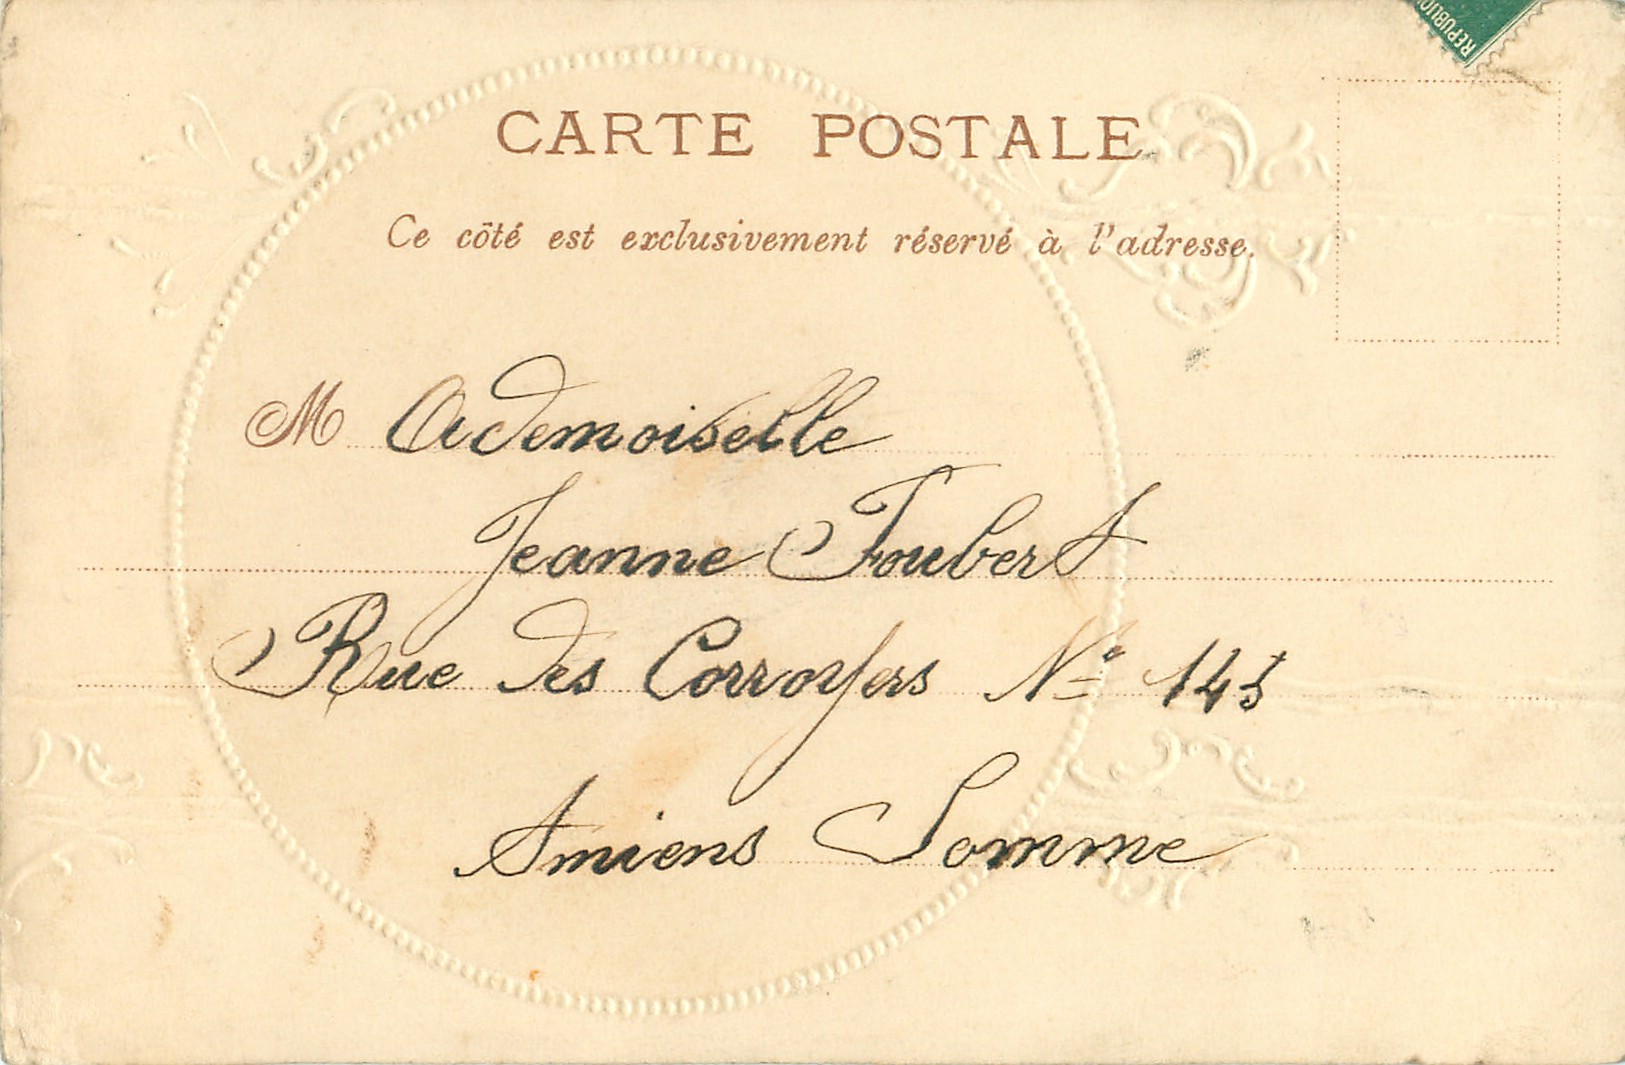 REPUBLIQ
CARTE POSTALE
Ce côté est exclusivement réservé à l'adresse.
Mademoiselle
Jeanne Joubert
Rue des Corroyers N° 145
Amiens Somme